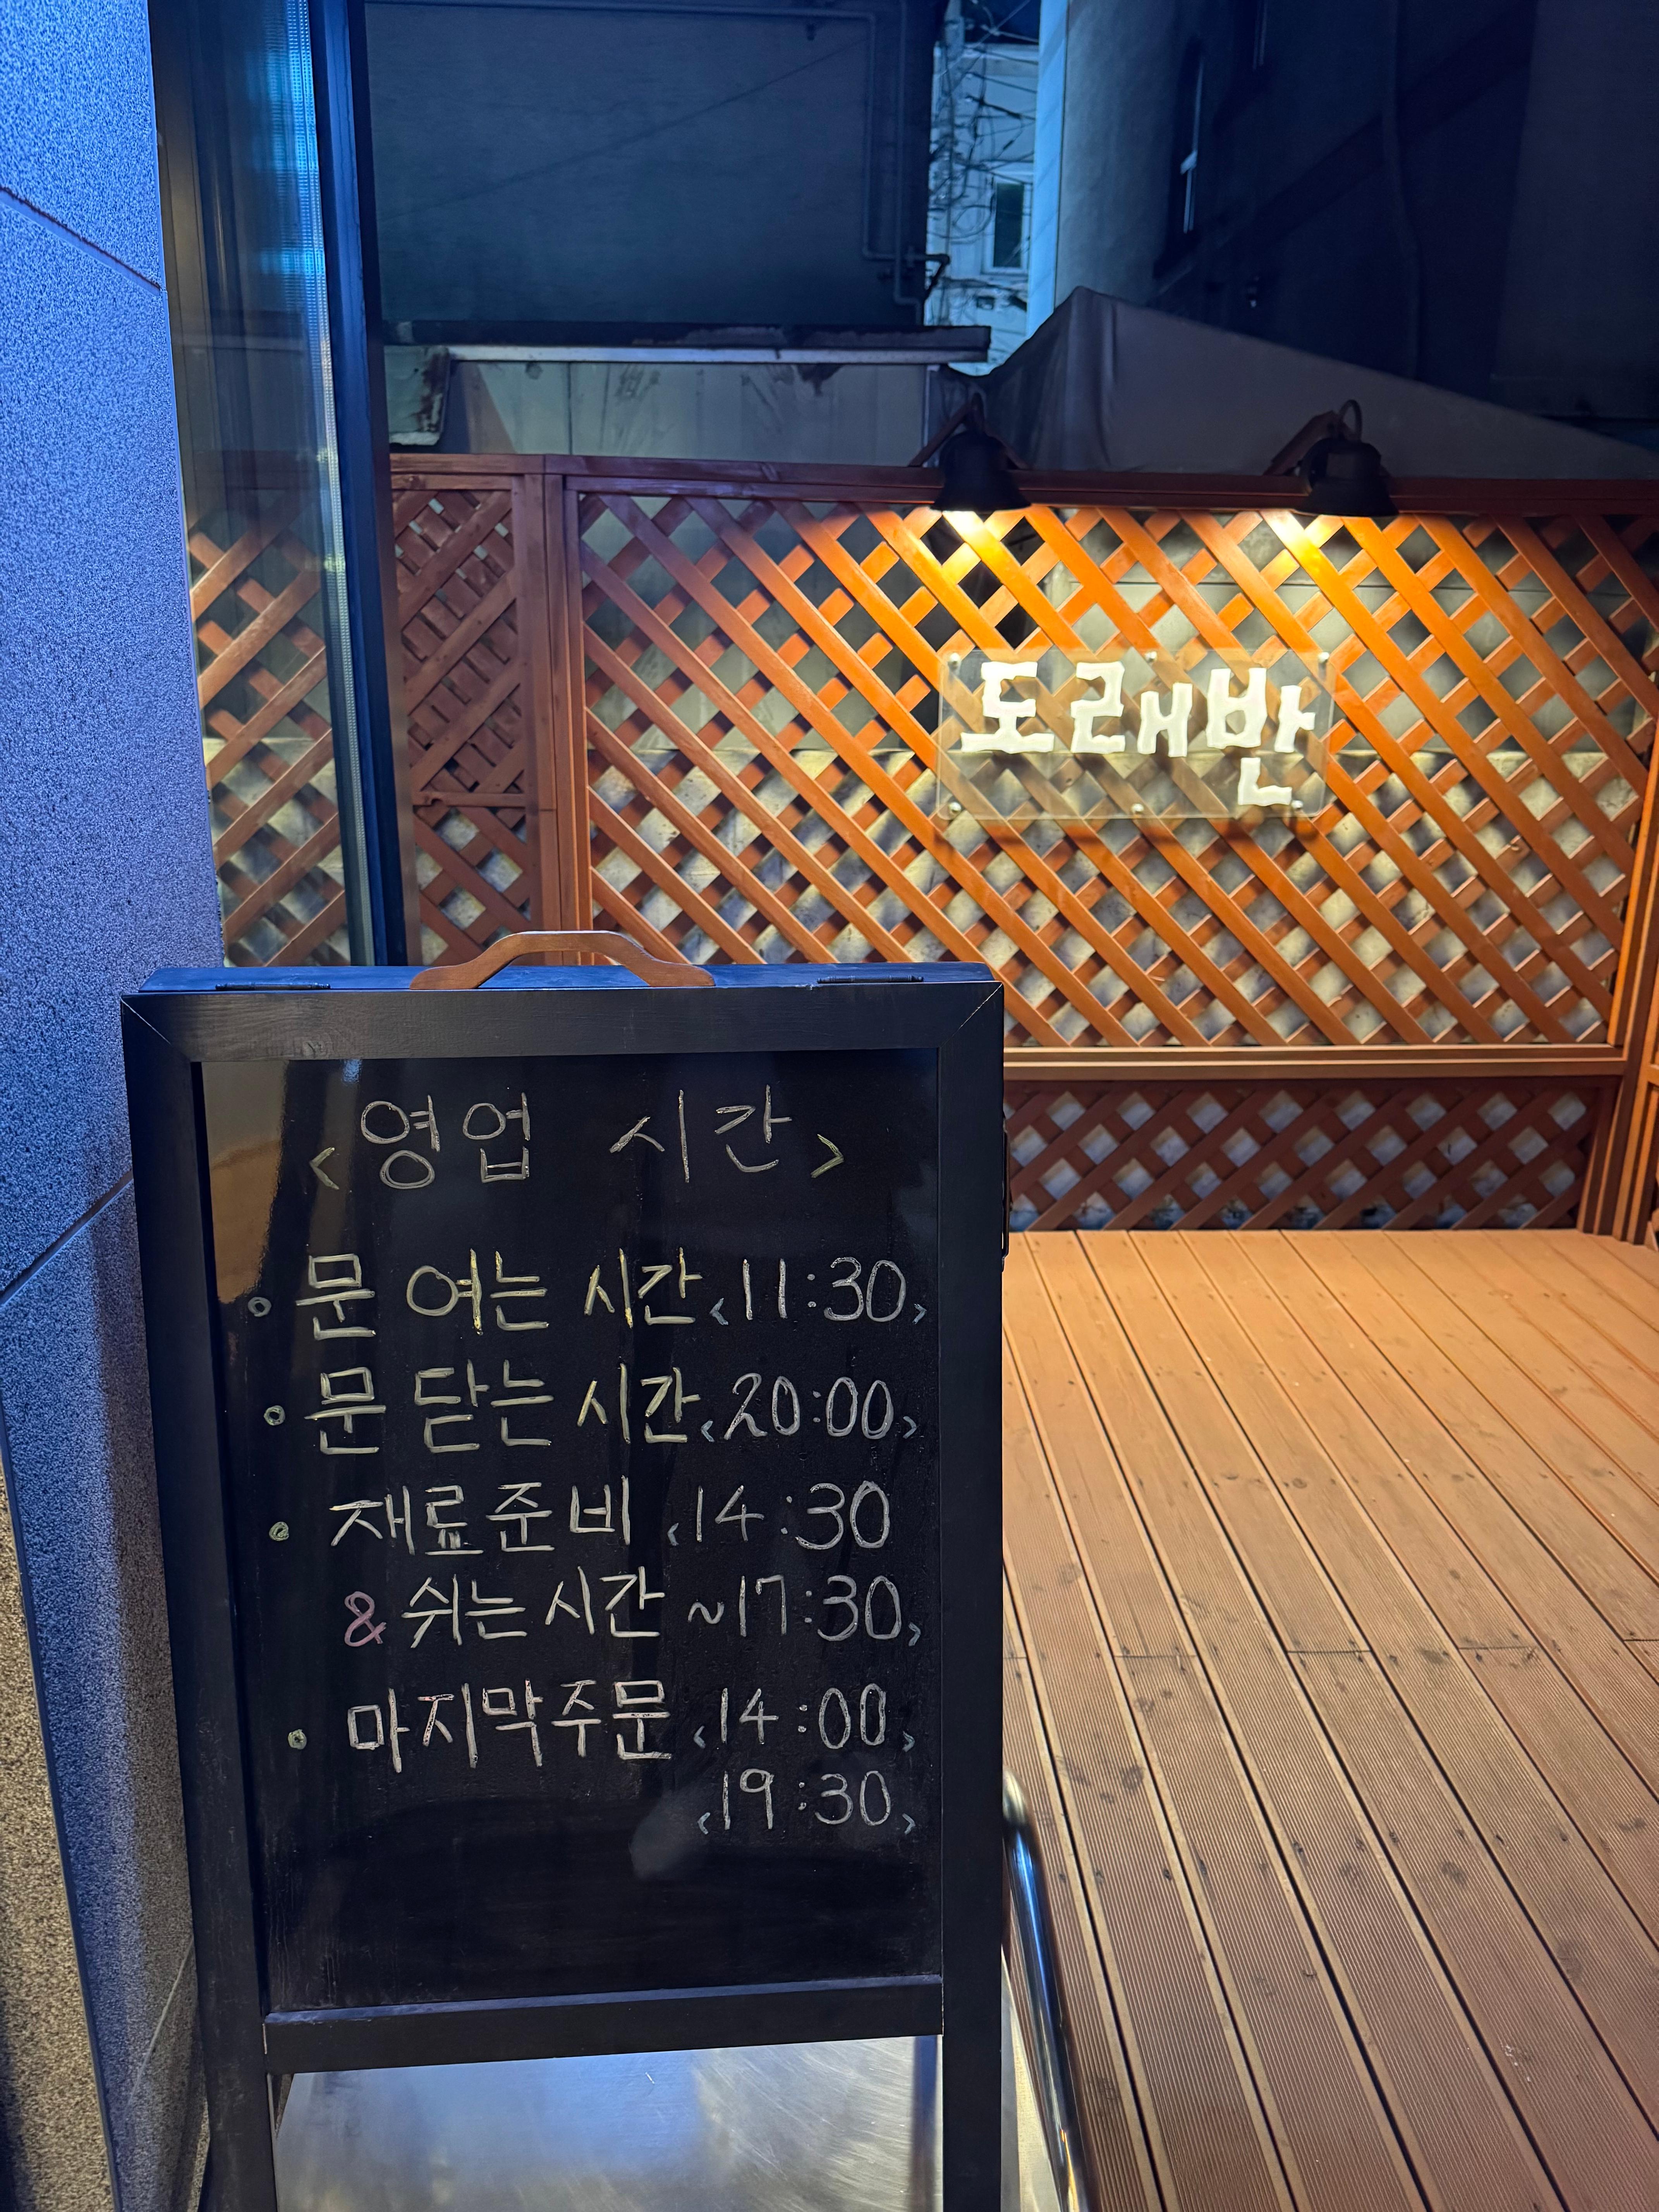 도래반
<영업 시간>
◦ 문 여는 시간 <11:30>
◦ 문 닫는 시간 <20:00>
◦ 재료준비 <14:30
& 쉬는시간 ~17:30>
◦ 마지막주문 <14:00>
<19:30>